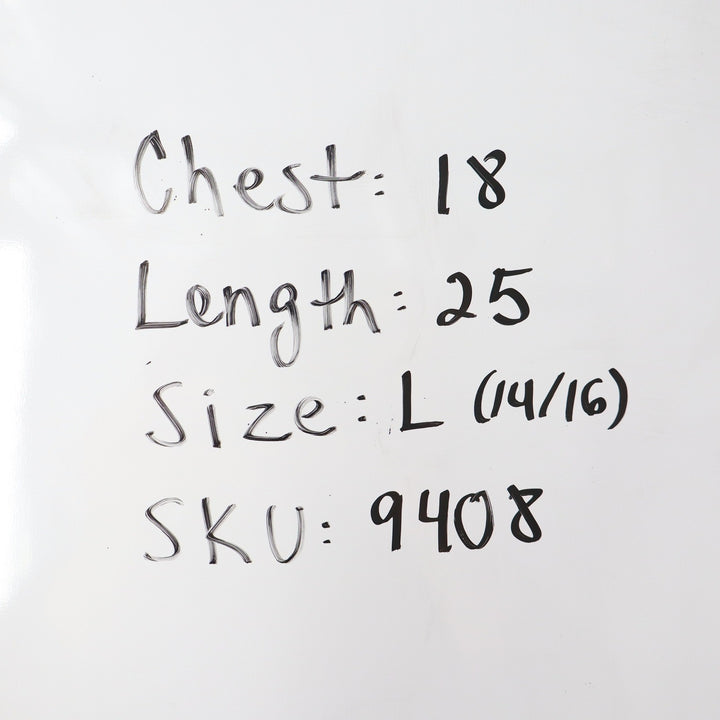 Chest: 18
Length: 25
Size: L (14/16)
SKU: 9408